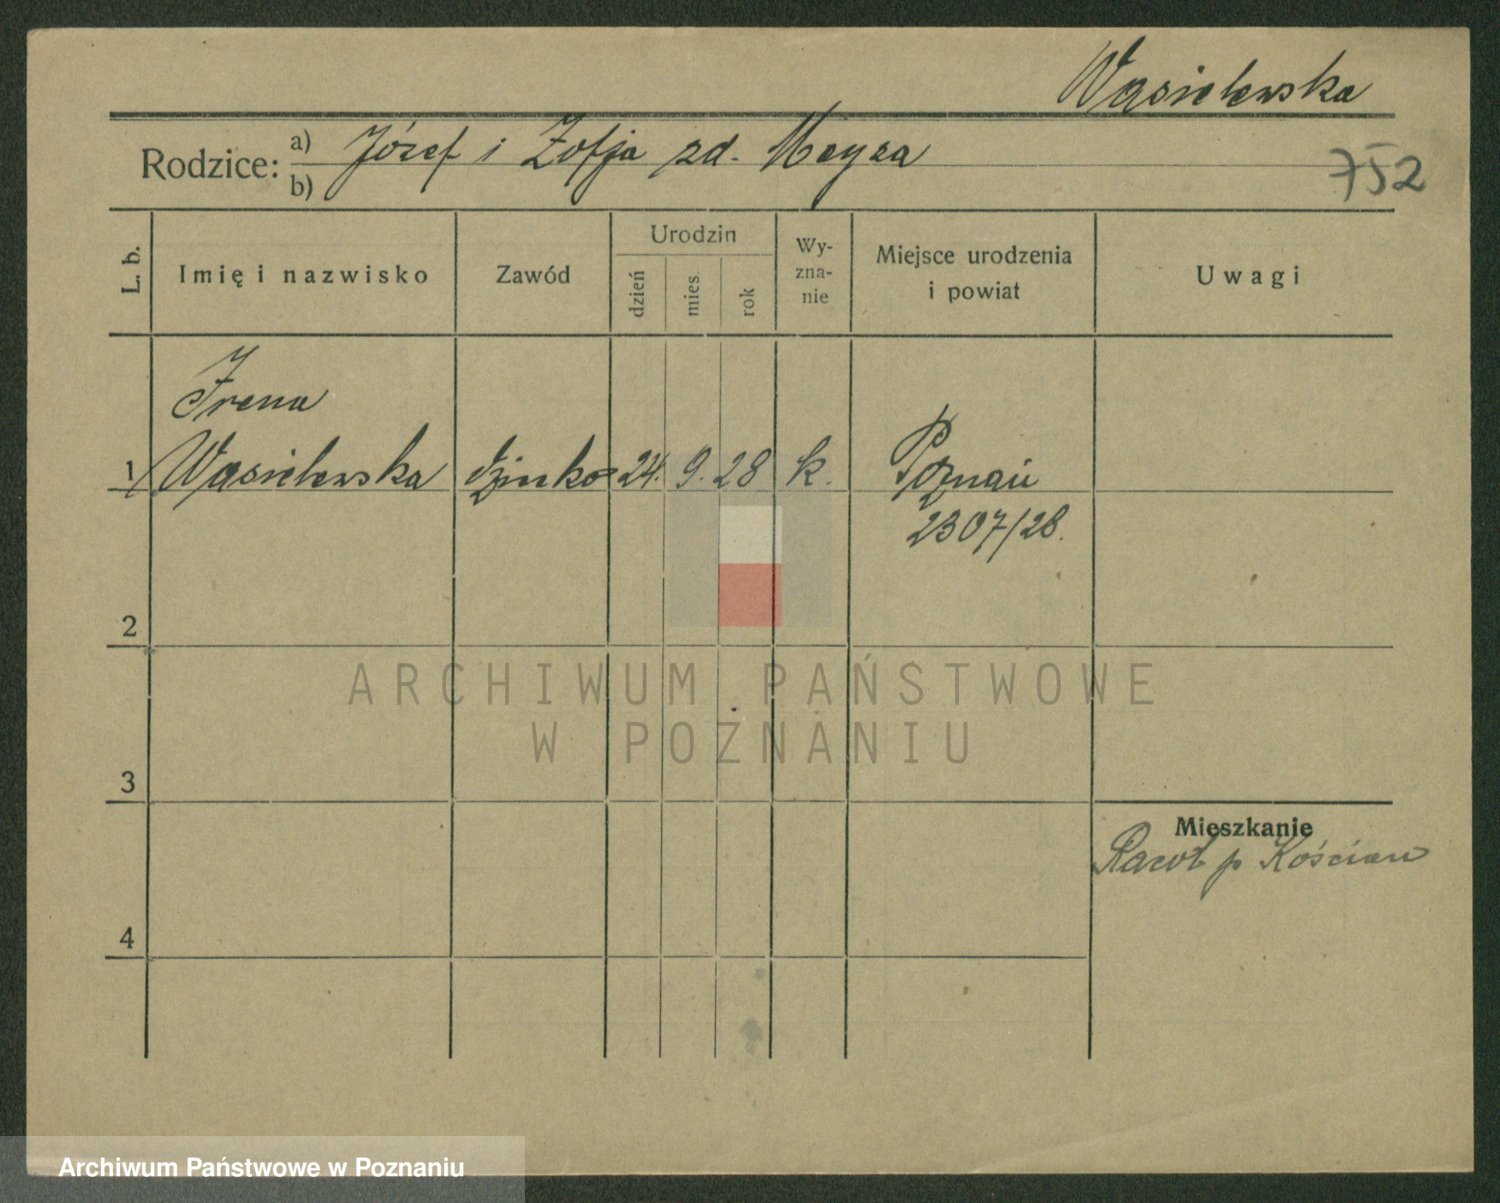 Wąsielewska
Rodzice: a) Józef i Zofja zd. Meyza
b)
752
L. b.
Imię i nazwisko
Zawód
Urodzin
dzień
mies.
rok
Wy-
zna-
nie
Miejsce urodzenia
i powiat
Uwagi
Irena
1 Wąsielewska 24. 9. 28 k. Poznań
2307/28.
2
ARCHIWUM PAŃSTWOWE
W POZNANIU
3
Mieszkanie
Racot p Kościan
4
Archiwum Państwowe w Poznaniu